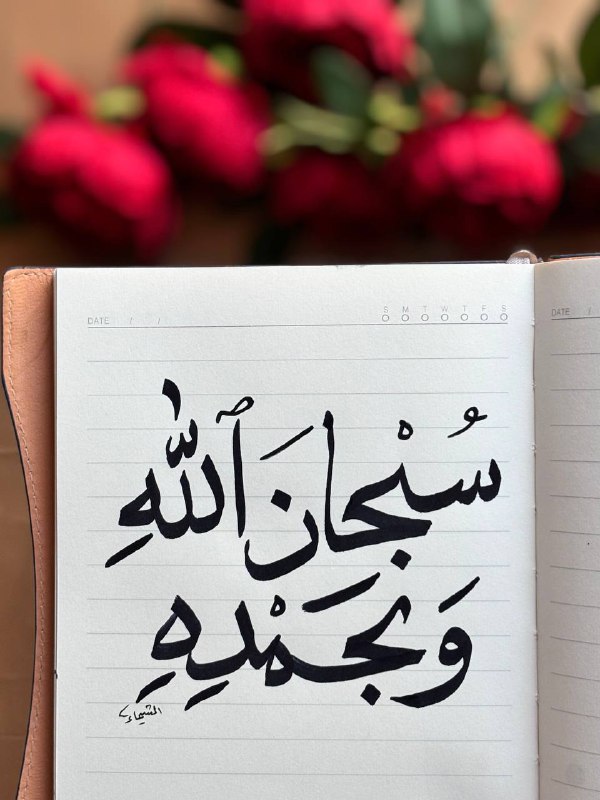 DATE / / S M T W T F S
DATE /
سُبْحَانَ ٱللّٰهِ
وَبحَمْدِهِ
الشيماء